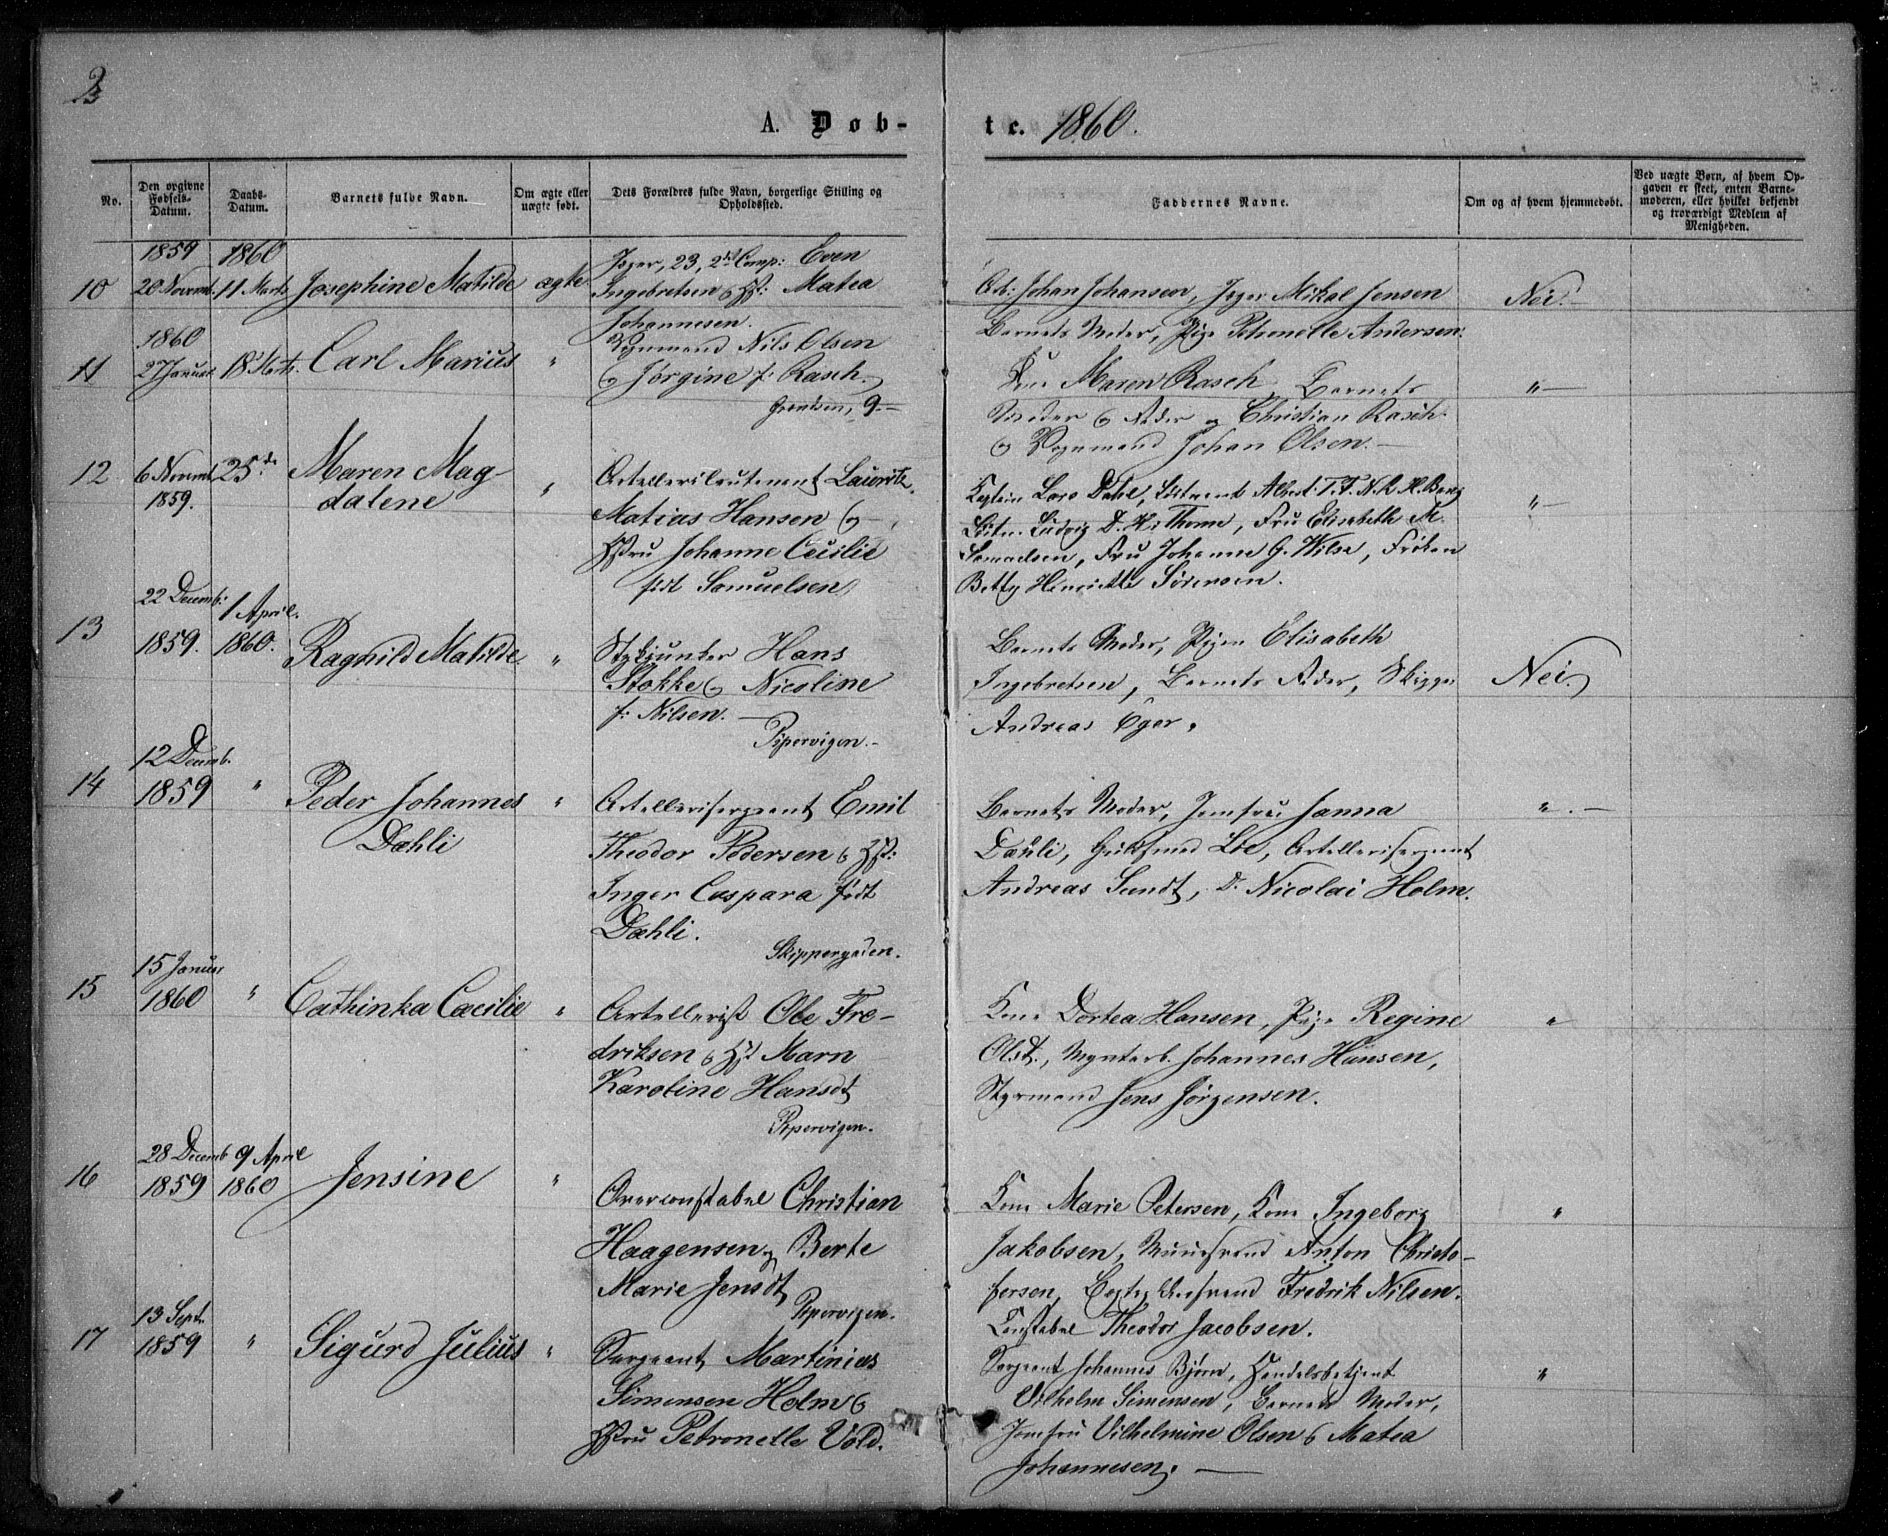 2
A. Døb-
te. 1860.
No.
Den opgivne Fødsels-Datum.
Daabs-Datum.
Barnets fulde Navn.
Om ægte eller uægte født.
Dets Forældres fulde Navn, borgerlige Stilling og Opholdssted.
Faddernes Navne.
Om og af hvem hjemmedøbt.
Ved uægte Børn, af hvem Opgaven er skeet, enten Barnemoderen, eller hvilket bekjendt og troværdigt Medlem af Menigheden.
10
1859
20 Novemb.
1860
11 Marts
Josephine Matilde
ægte
Jæger, 23, 2det Comp: Even
Ingebretsen & Hst: Matea
Johannesen.
Arb: Johan Johansen, Jæger Mikal Jensen
Barnets Moder, Pige Petronelle Andersen.
Nei.
11
1860
27 Januar
18 Marts.
Carl Marius
"
Vognmand Nils Olsen
& Jørgine f: Rasch.
Grændsen, 9.
Kone Maren Rasch, Barnets
Moder & Fader og Christian Rasch.
& Vognmand Johan Olsen.
" —
12
6 Novemb
1859.
25de
Maren Mag
dalene
"
Artellerilieutenant Lauritz
Matias Hansen &
Hstru Johanne Cecilie
født Samuelsen
Kaptein Lars Dahl, Løitnant Albert T. F. N. R. H. Bang
Løitn. Ludvig D. H. Thome, Fru Elisabeth M.
Samuelsen, Fru Johanne G. Wilse, Frøken
Betty Henriette Sørensen.
" —
13
22 Decemb:
1859.
1 April.
1860.
Ragnild Matilde
"
Stykjunker Hans
Stokke & Nicoline
f: Nilsen. —
Pipervigen. —
Barnets Moder, Pigen Elisabeth
Ingebretsen, Barnets Fader,
Andreas Eger.
Nei.
14
12 Decemb.
1859
"
Peder Johannes
Dæhli
"
Artellerisergeant Emil
Theodor Pedersen & Hst:
Inger Caspara født
Dæhli.
Skippergaden.
Barnets Moder, Jomfru Janna
Dæhli, Guldsmed Lie, Artellerisergeant
Andreas Sundt, Do Nicolai Holm.
" . —
15
15 Januar
1860
"
Cathinka Caecilie
"
Artellerist Ole Fre-
driksen & Hst Marn
Karoline Hansdt
Pipervigen.
Kone Dortea Hansen, Pige Regine
Olsdt., Myntarb. Johannes Hansen,
Styrmand Jens Jørgensen.
"
16
28 Decemb
1859
9 April
1860
Jensine
"
Overconstabel Christian
Haagensen & Berte
Marie Jensdt
Pipervigen.
Kone Marie Petersen, Kone Ingeborg
Jakobsen, Muursvend Anton Christo-
fersen, Fredrik Nilsen.
Constabel Theodor Jacobsen.
"
17
13 Sept.
1859
"
Sigurd Julius
"
Sergeant Martinius
Simensen Holm &
Hstru Petronelle Vold.
Sergeant Johannes Bjørn, Handelsbetjent
Vilhelm Simensen, Barnets Moder,
Jomfru Vilhelmine Olsen & Matea
Johannesen. —
"